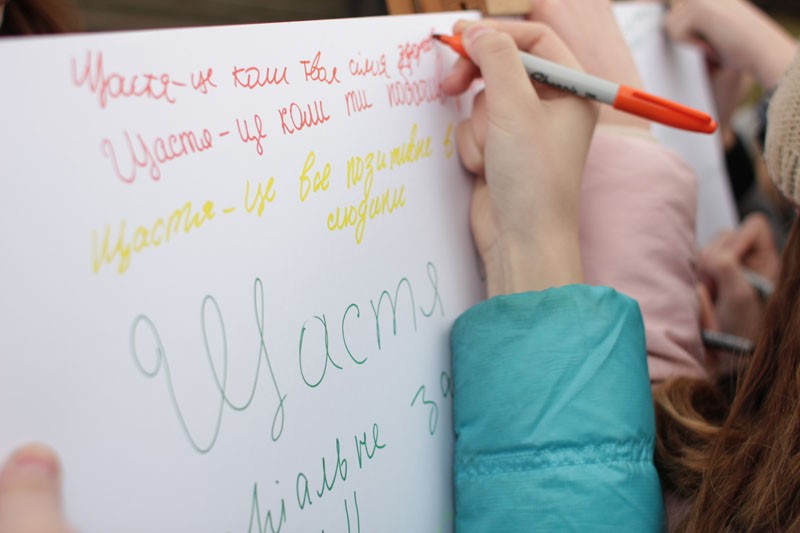 Щастя-це коли твоя сім'я здорова
Щастя-це коли ти
Щастя-це все позитивне в
людини
Щастя
за
Sharpie